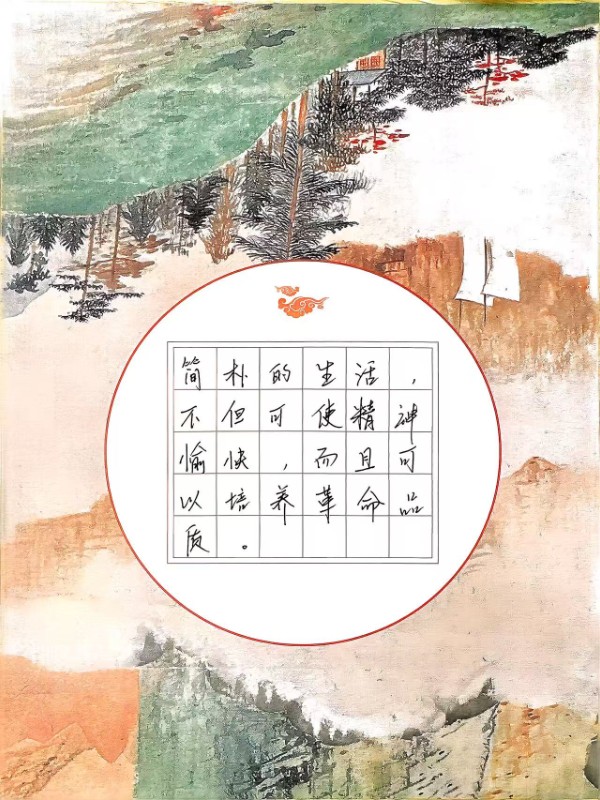 简朴的生活，
不但可使精神
愉快，而且可
以培养革命品
质。